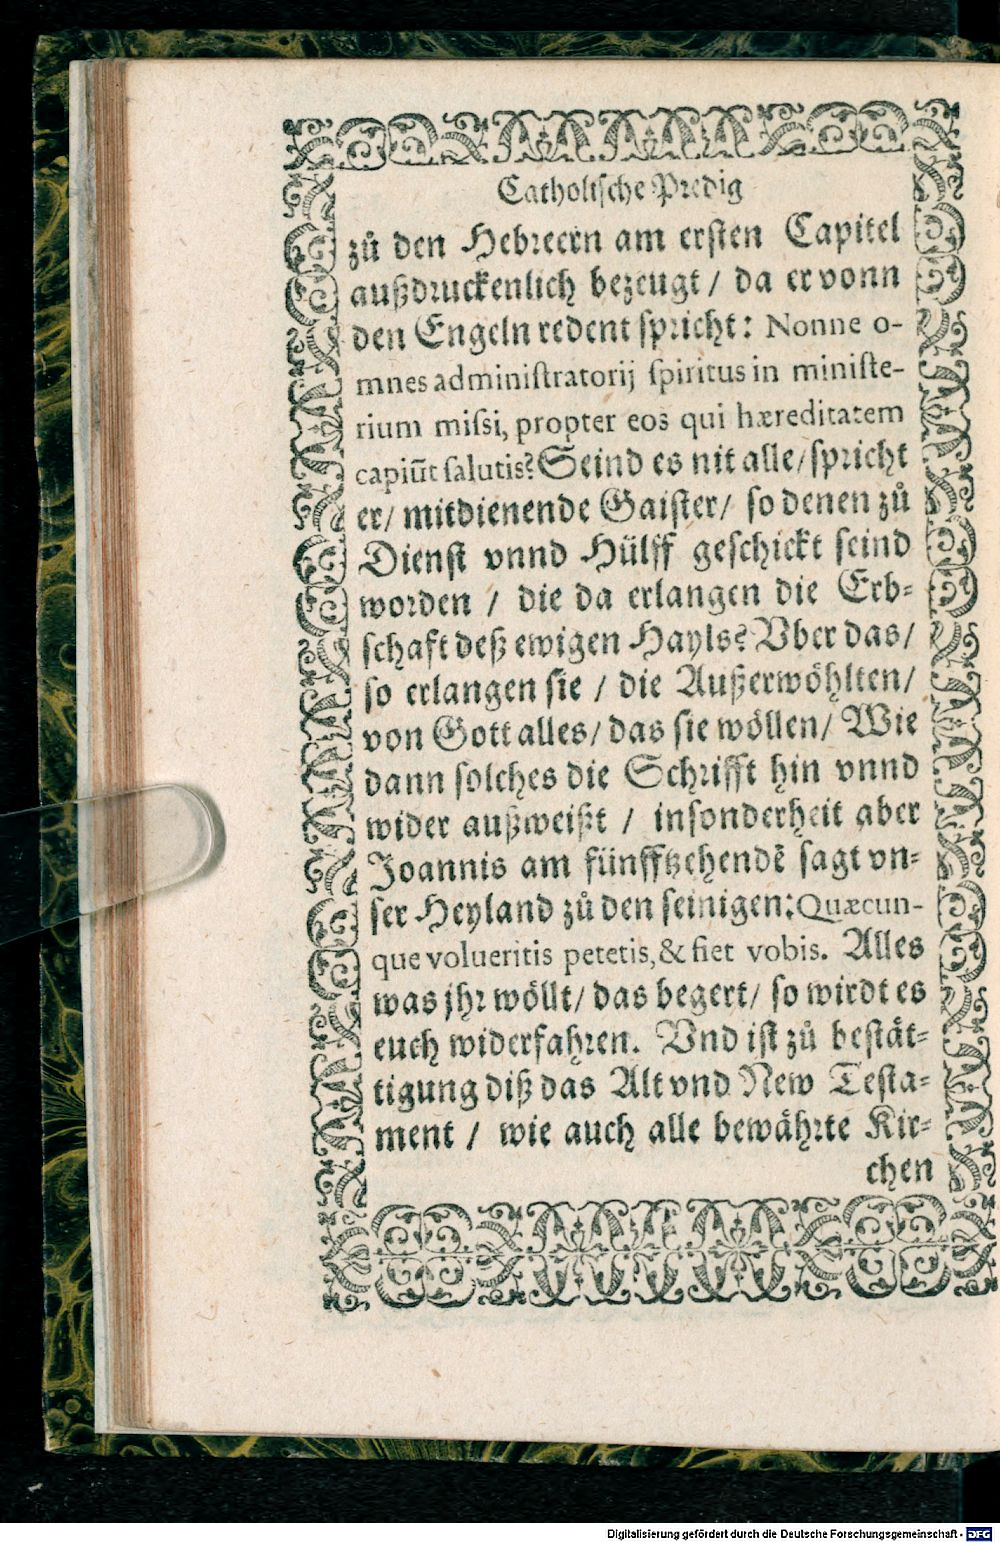 Catholische Predig
zů den Hebreern am ersten Capitel
außdruckenlich bezeugt / da er vonn
den Engeln redent spricht: Nonne o-
mnes administratorij spiritus in ministe-
rium missi, propter eos qui hæreditatem
capiūt salutis? Seind es nit alle / spricht
er / mitdienende Gaister / so denen zů
Dienst vnnd Hülff geschickt seind
worden / die da erlangen die Erb-
schaft deß ewigen Hayls? Vber das /
so erlangen sie / die Außerwöhlten /
von Gott alles / das sie wöllen / Wie
dann solches die Schrifft hin vnnd
wider außweißt / insonderheit aber
Joannis am fünfftzehendē sagt vn-
ser Heyland zů den seinigen: Quæcun-
que volueritis petetis, & fiet vobis. Alles
was jhr wöllt / das begert / so wirdt es
euch widerfahren. Vnd ist zů bestät-
tigung diß das Alt vnd New Testa-
ment / wie auch alle bewährte Kir-
chen
Digitalisierung gefördert durch die Deutsche Forschungsgemeinschaft - DFG